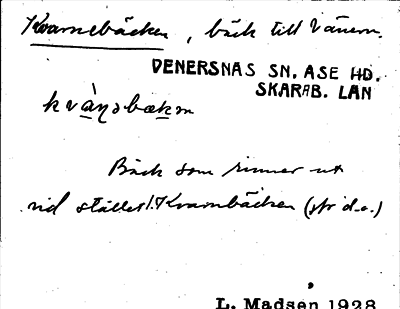 Kvarnebäcken, bäck till Vänern.
VENERSNÄS SN. ÅSE HD.
SKARAB. LÄN
kvà̱ṉəbæḵen
Bäck som rinner ut
vid stället Kvarnbäcken (str d.o.)
L. Madsen 1928